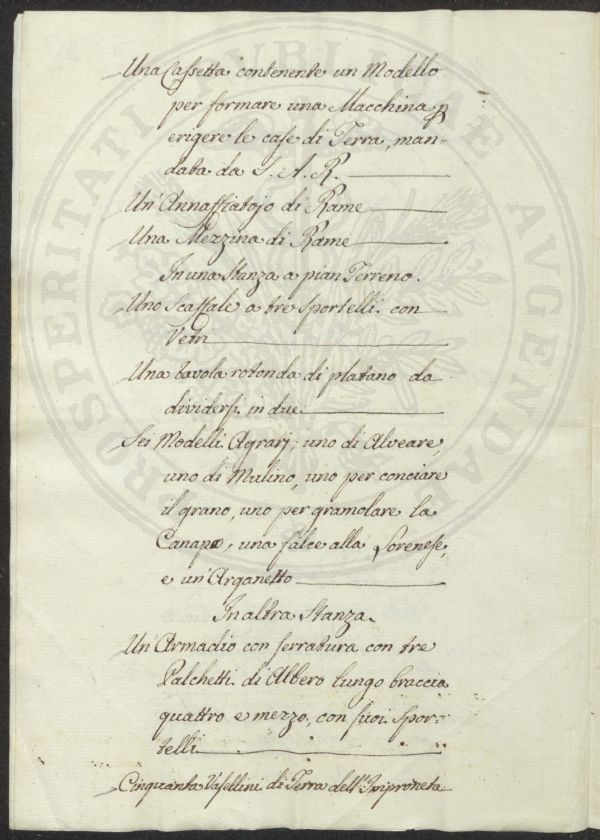 Una Cassetta contenente un Modello
per formare una Macchina p
erigere le case di Terra, man-
data da S. A. R.
Un' Annaffiatojo di Rame
Una Mezzina di Rame
In una Stanza a pian Terreno.
Uno Scaffale a tre Sportelli con
Vetri
Una tavola rotonda di platano da
dividersi in due
Sei Modelli Agrarj; uno di Alveare,
uno di Mulino, uno per conciare
il grano, uno per gramolare la
Canapa, una falce alla Lorenese,
e un' Arganetto
In altra Stanza.
Un' Armadio con serratura con tre
Palchetti di Albero lungo braccia
quattro e mezzo, con suoi Spor-
telli
Cinquanta Vasellini di Terra dell' Impruneta
PROSPERITATI PUBLICAE AUGENDAE